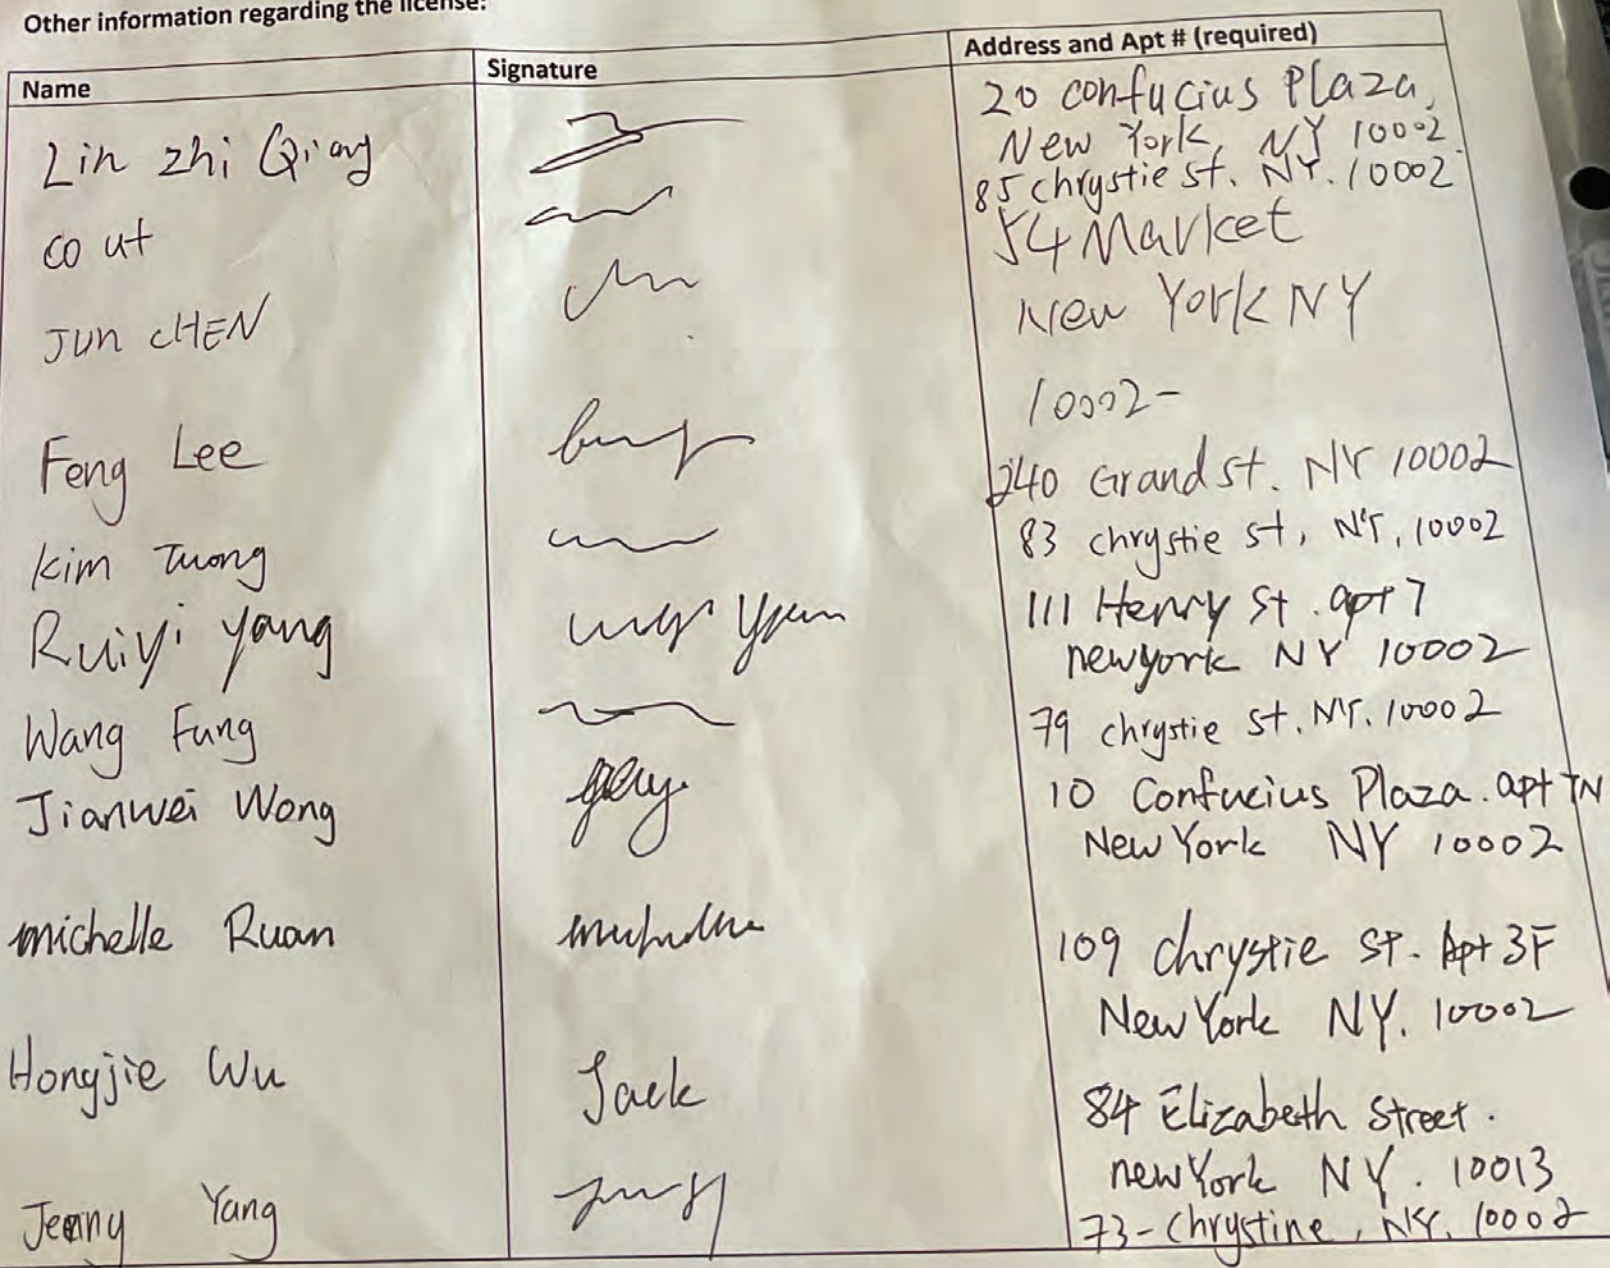 Other information regarding the license:
Name
Signature
Address and Apt # (required)
Lin zhi Qiang
20 confucius Plaza,
New York, NY 10002
co ut
85 chrystie st. NY. 10002
Jun CHEN
54 Market
New York NY
10002-
Feng Lee
240 Grand st. NY 10002
Kim Tuong
83 chrystie st, NY, 10002
Ruiyi Yang
111 Henry St. apt 7
newyork NY 10002
Wang Fung
79 chrystie st. NY. 10002
Jianwei Wong
10 Confucius Plaza. apt
New York NY 10002
michelle Ruan
109 chrystie st. Apt 3F
New York NY. 10002
Hongjie Wu
Jack
84 Elizabeth Street.
new York NY. 10013
Jenny Yang
73-Chrystine, NY. 10002